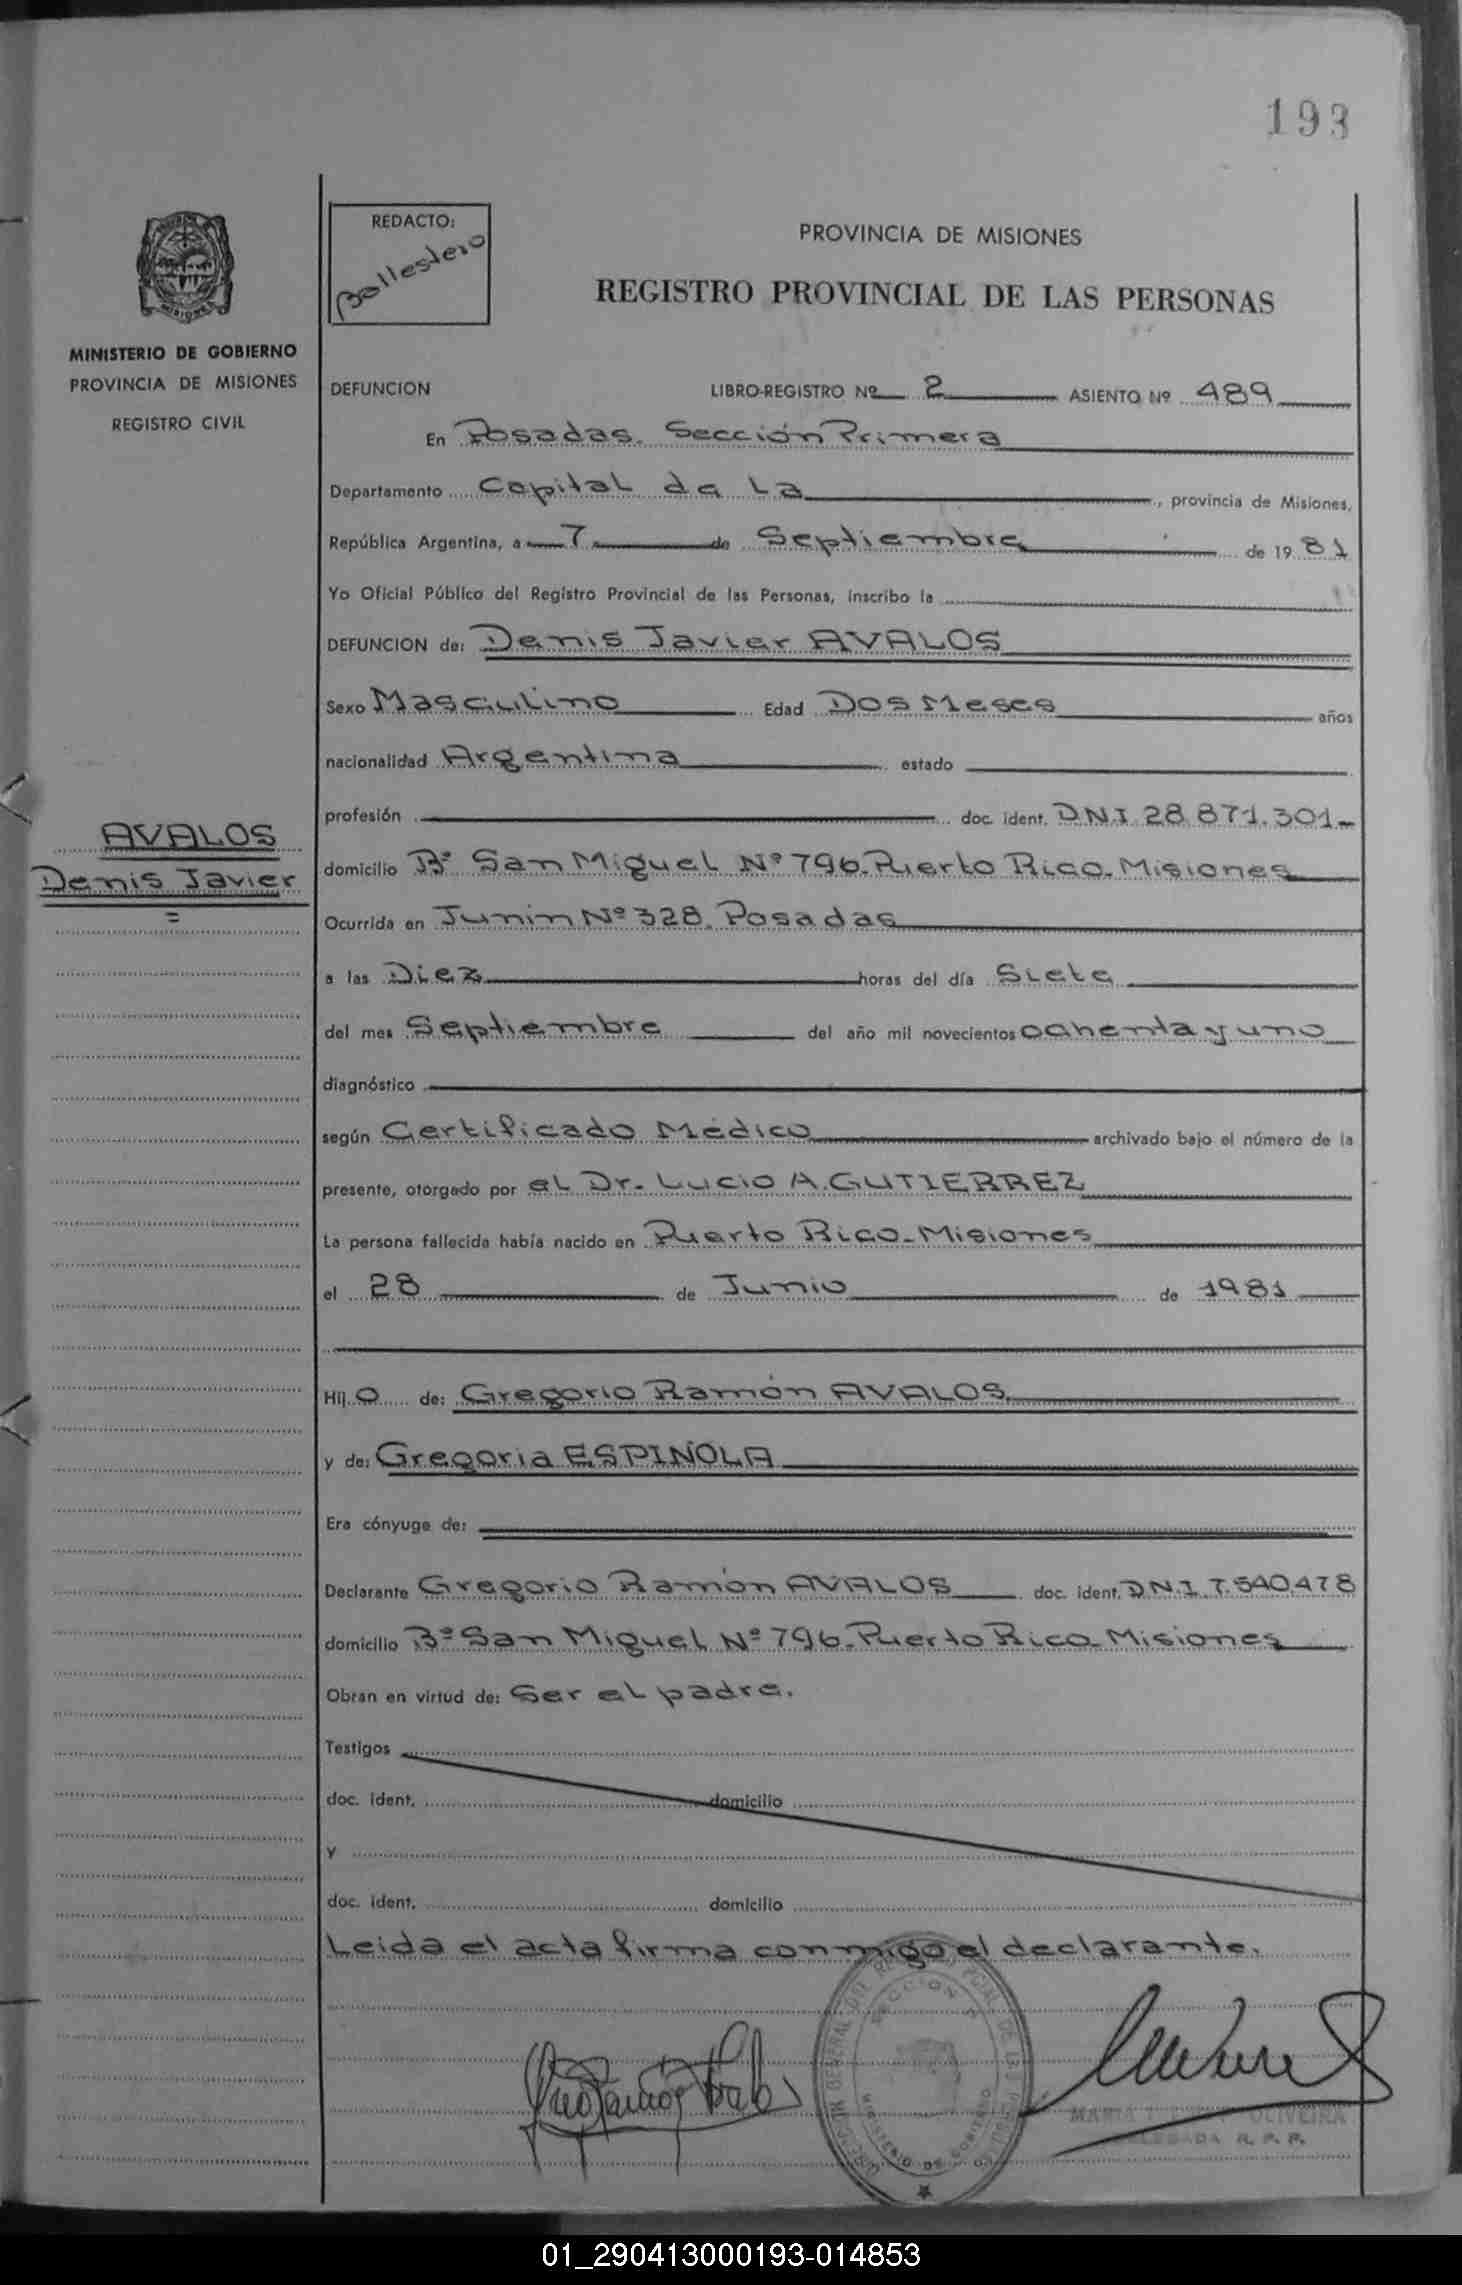 193
REDACTO:
Ballestero
PROVINCIA DE MISIONES
REGISTRO PROVINCIAL DE LAS PERSONAS
MISIONES
MINISTERIO DE GOBIERNO
PROVINCIA DE MISIONES
REGISTRO CIVIL
AVALOS
Denis Javier
=
DEFUNCION LIBRO-REGISTRO Nº 2 ASIENTO Nº 489
En Posadas. Sección Primera
Departamento Capital de La, provincia de Misiones,
República Argentina, a 7 de Septiembre de 1981
Yo Oficial Público del Registro Provincial de las Personas, inscribo la
DEFUNCION de: Denis Javier AVALOS
Sexo Masculino Edad Dos Meses años
nacionalidad Argentina estado
profesión doc. ident. D.N.I. 28.871.301-
domicilio Bº San Miguel Nº 796. Puerto Rico. Misiones
Ocurrida en Junin Nº 328. Posadas
a las Diez horas del día Siete
del mes Septiembre del año mil novecientos ochenta y uno
diagnóstico
según Certificado Médico archivado bajo el número de la
presente, otorgado por el Dr. Lucio A. GUTIERREZ
La persona fallecida había nacido en Puerto Rico-Misiones
el 28 de Junio de 1981
Hij o de: Gregorio Ramón AVALOS.
y de: Gregoria ESPINOLA
Era cónyuge de:
Declarante Gregorio Ramón AVALOS doc. ident. D.N.I. 7.540.478
domicilio Bº San Miguel Nº 796. Puerto Rico-Misiones
Obran en virtud de: Ser el padre.
Testigos
doc. ident. domicilio
y
doc. ident. domicilio
Leida el acta firma conmigo el declarante.
SECCION
MINISTERIO DE GOBIERNO
MARIA OLIVEIRA
R. P. P.
01_290413000193-014853